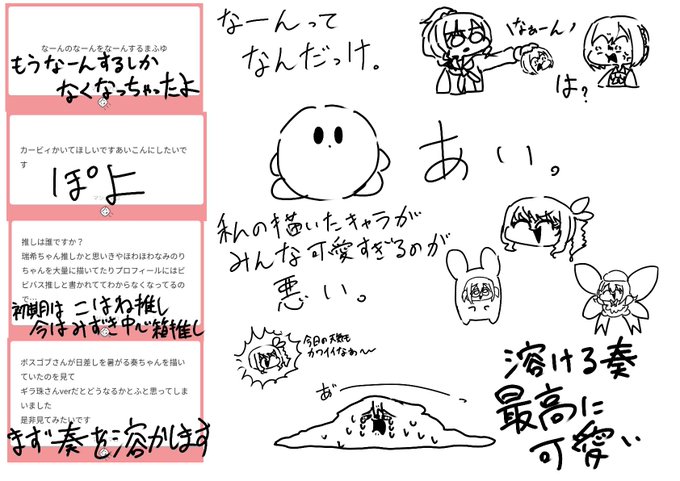 なーんのなーんをなーんするまふゆ
もうなーんするしか
なくなっちゃったよ
なーんって
なんだっけ。
なぁーん
は?
カービィかいてほしいですあいこんにしたいで
す
ぽよ
あい。
推しは誰ですか?
瑞希ちゃん推しかと思いきやほわほわなみのり
ちゃんを大量に描いてたりプロフィールにはビ
ビバス推しと書かれててわからなくなってるの
で
初期は こはね推し
今はみずき中心箱推し
私の描いたキャラが
みんな可愛すぎるのが
悪い。
ボスゴブさんが日差しを暑がる奏ちゃんを描い
ていたのを見て
ギラ珠さんverだとどうなるかとふと思ってしま
いました
是非見てみたいです
まず奏を溶かします
今日の天気も
カワイイなぁ〜
あ゛
溶ける奏
最高に
可愛い